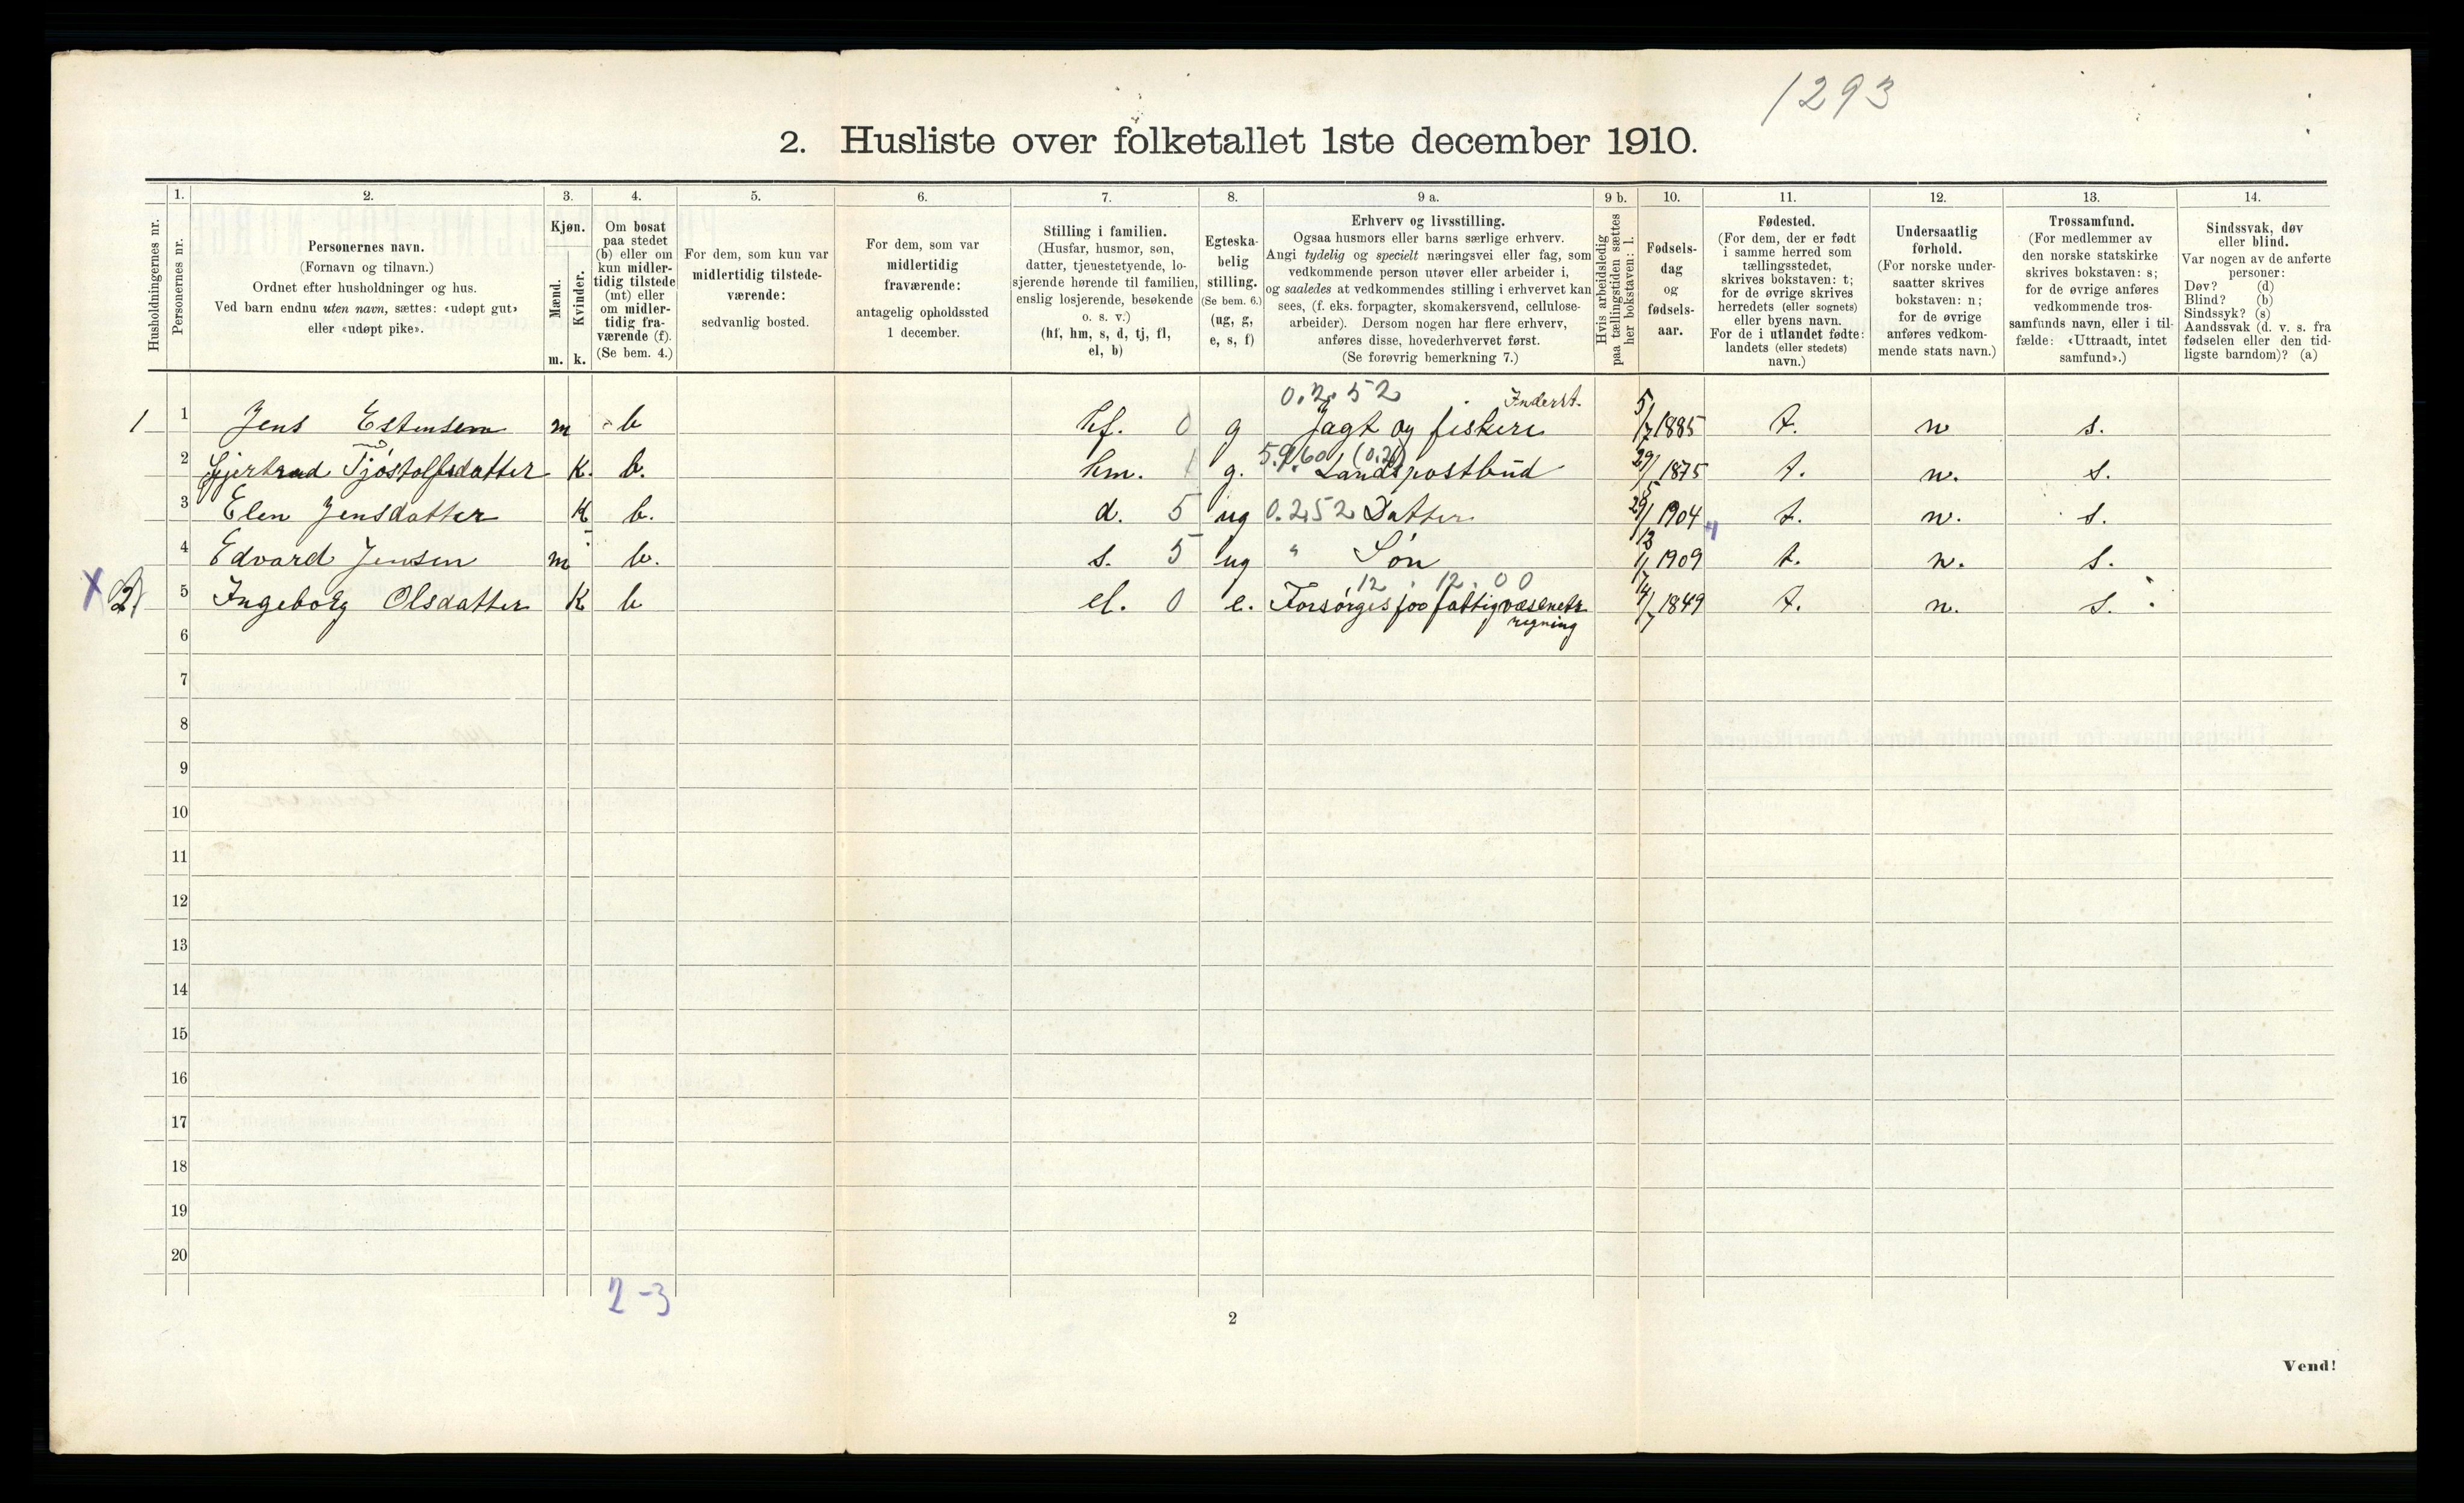 1293
2. Husliste over folketallet 1ste december 1910.
1. 2. 3. 4. 5. 6. 7. 8. 9 a. 9 b. 10. 11. 12. 13. 14.
Husholdningernes nr.
Personernes nr.
Personernes navn.
(Fornavn og tilnavn.)
Ordnet efter husholdninger og hus.
Ved barn endnu uten navn, sættes: «udøpt gut»
eller «udøpt pike».
Kjøn.
Mænd.
Kvinder.
m. k.
Om bosat
paa stedet
(b) eller om
kun midler-
tidig tilstede
(mt) eller
om midler-
tidig fra-
værende (f).
(Se bem. 4.)
For dem, som kun var
midlertidig tilstede-
værende:
sedvanlig bosted.
For dem, som var
midlertidig
fraværende:
antagelig opholdssted
1 december.
Stilling i familien.
(Husfar, husmor, søn,
datter, tjenestetyende, lo-
sjerende hørende til familien,
enslig losjerende, besøkende
o. s. v.)
(hf, hm, s, d, tj, fl,
el, b)
Egteska-
belig
stilling.
(Se bem. 6.)
(ug, g,
e, s, f)
Erhverv og livsstilling.
Ogsaa husmors eller barns særlige erhverv.
Angi tydelig og specielt næringsvei eller fag, som
vedkommende person utøver eller arbeider i,
og saaledes at vedkommendes stilling i erhvervet kan
sees, (f. eks. forpagter, skomakersvend, cellulose-
arbeider). Dersom nogen har flere erhverv,
anføres disse, hovederhvervet først.
(Se forøvrig bemerkning 7.)
Hvis arbeidsledig
paa tællingstiden sættes
her bokstaven: l.
Fødsels-
dag
og
fødsels-
aar.
Fødested.
(For dem, der er født
i samme herred som
tællingsstedet,
skrives bokstaven: t;
for de øvrige skrives
herredets (eller sognets)
eller byens navn.
For de i utlandet fødte:
landets (eller stedets)
navn.)
Undersaatlig
forhold.
(For norske under-
saatter skrives
bokstaven: n;
for de øvrige
anføres vedkom-
mende stats navn.)
Trossamfund.
(For medlemmer av
den norske statskirke
skrives bokstaven: s;
for de øvrige anføres
vedkommende tros-
samfunds navn, eller i til-
fælde: «Uttraadt, intet
samfund».)
Sindssvak, døv
eller blind.
Var nogen av de anførte
personer:
Døv? (d)
Blind? (b)
Sindssyk? (s)
Aandssvak (d. v. s. fra
fødselen eller den tid-
ligste barndom)? (a)
0.2.52 Inderst.
1 1 Jens Estensen m b hf. 0 g Jagt og fiskeri 5/7 1885 t. n s.
5.9.60 (0.2)
2 Gjertrud Tjóstolfsdatter K. b. hm. 1 g. Landspostbud 29/5 1875 t. n. s.
3 Elen Jensdatter K b. d. 5 ug 0.2.52 Datter 29/12 1904 t. n. s.
4 Edvard Jensen m b. s. 5 ug " Søn 1909 t. n. s.
12.12.00
X 2) 5 Ingeborg Olsdatter K b el. 0 e. Forsørges for fattigvæsenets 14/7 1849 t. n. s.
regning
6
7
8
9
10
11
12
13
14
15
16
17
18
19
20
2-3
2
Vend!